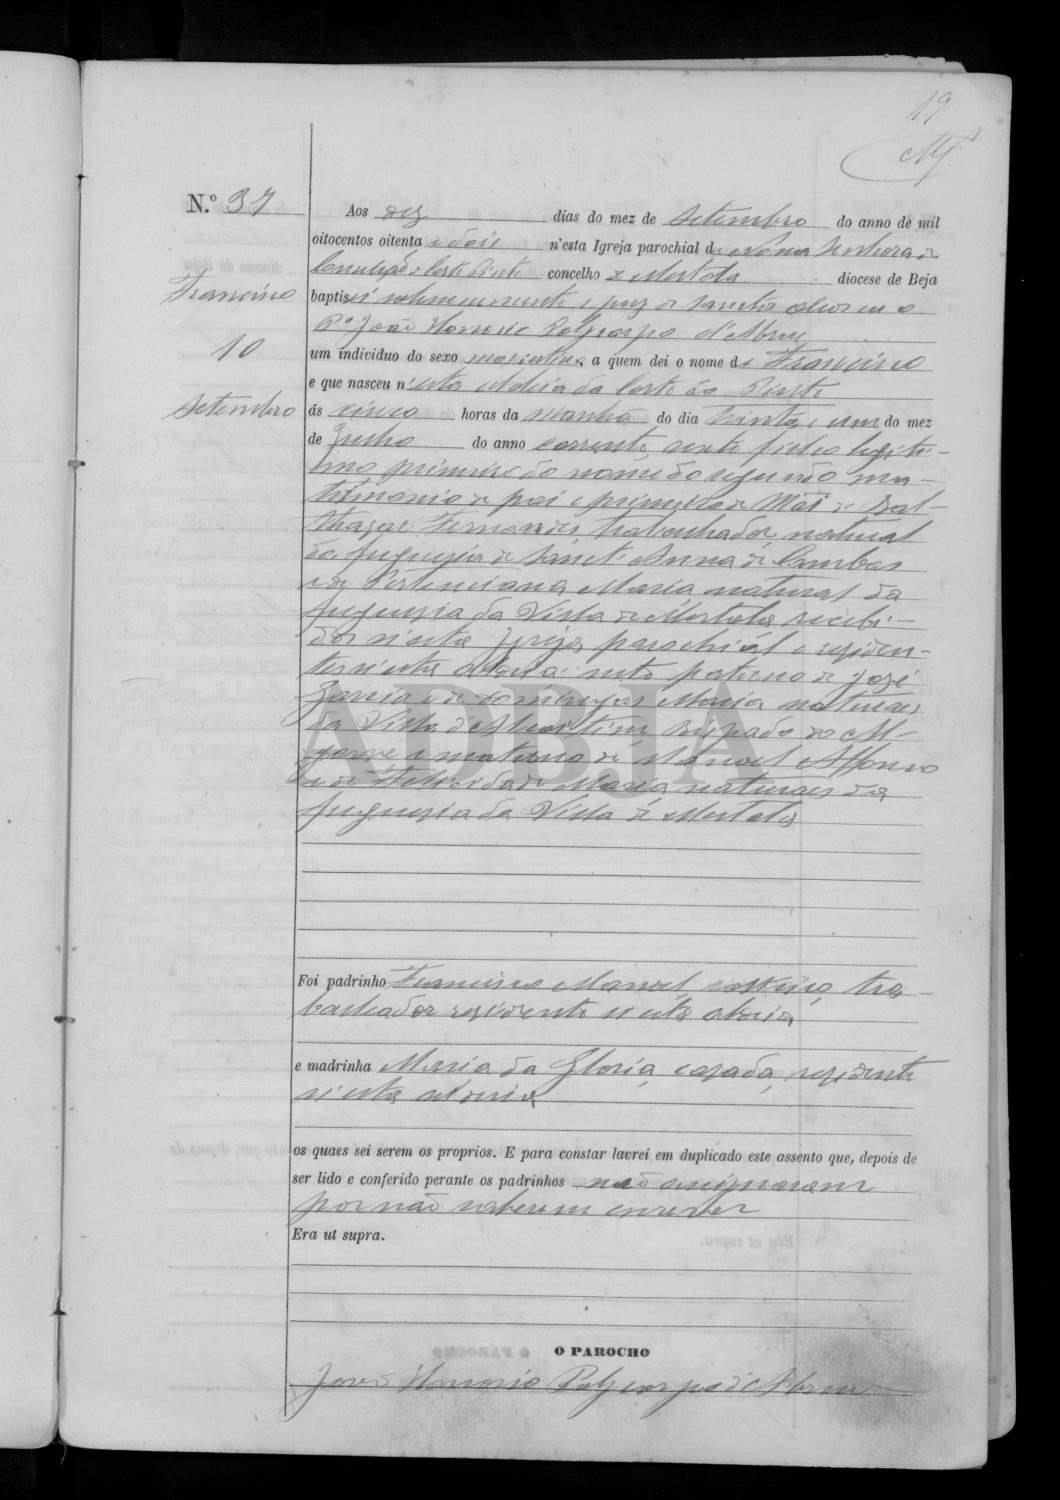 19
N.º 37
Francisco
10
Setembro
Aos dez dias do mez de Setembro do anno de mil
oitocentos oitenta e dois n'esta Igreja parochial de Nossa Senhora da
Conceição Corte Pinto concelho de Mertola diocese de Beja
baptisei solemnemente e puz os Sanctos oleos eu o
P.e João Honorio Polycarpo d'Abreu
um individuo do sexo masculino, a quem dei o nome de Francisco
e que nasceu n'esta Aldeia da Corte do Pinto
ás cinco horas da manhã do dia trinta e um do mez
de Julho do anno corrente, sexto filho legiti-
mo primeiro do nome do segundo ma-
trimonio do pai e primeiro da Mãi de Bal-
thazar Fernandes, trabalhador, natural
da freguezia de Sanct' Anna de Cambas
e de Potenciana Maria natural da
freguezia da Villa de Mertola, recebi-
dos n'esta Igreja parochial e residen-
tes n'esta aldeia: neto paterno de José
Garcia e de Domingas Maria naturaes
da Villa d'Alcoutim Bispado do Al-
garve e materno de Manoel Affonso
e de Felicidade Maria naturaes da
freguezia da Villa de Mertola
ADBJA
Foi padrinho Francisco Manoel, solteiro, tra-
balhador residente n'esta aldeia
e madrinha Maria da Gloria, casada, residente
n'esta aldeia
os quaes sei serem os proprios. E para constar lavrei em duplicado este assento que, depois de
ser lido e conferido perante os padrinhos não assignaram
por não saberem escrever
Era ut supra.
O PAROCHO
João Honorio Polycarpo d'Abreu